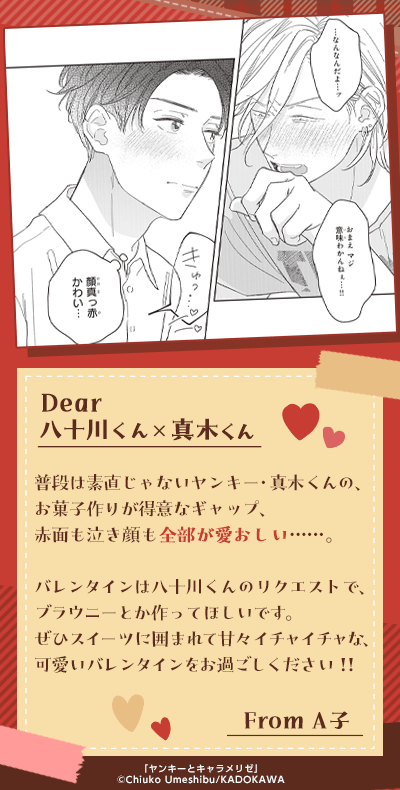 …なんなんだよ…ッ
おまえマジ
意味わかんねぇ…!!
きゅっ…
顔真っ赤
かわい…
Dear
八十川くん×真木くん
普段は素直じゃないヤンキー・真木くんの、
お菓子作りが得意なギャップ、
赤面も泣き顔も全部が愛おしい……。
バレンタインは八十川くんのリクエストで、
ブラウニーとか作ってほしいです。
ぜひスイーツに囲まれて甘々イチャイチャな、
可愛いバレンタインをお過ごしください!!
From A子
「ヤンキーとキャラメリゼ」
©Chiuko Umeshibu/KADOKAWA